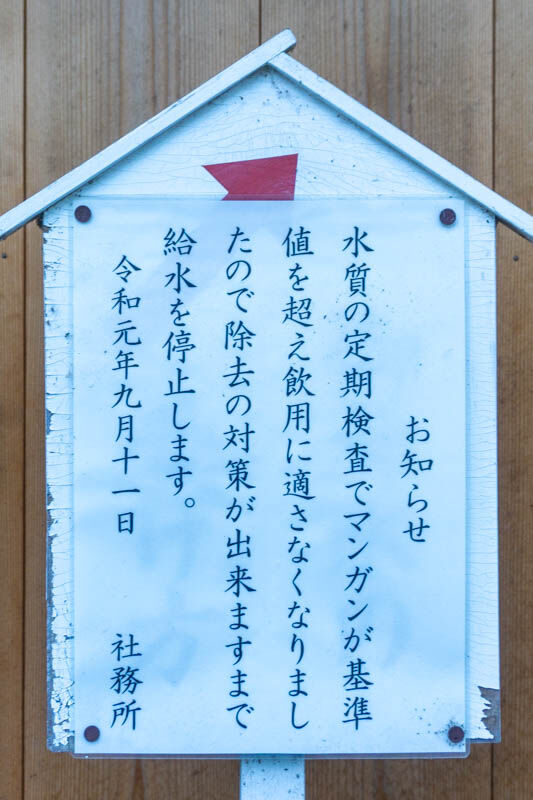 お知らせ
水質の定期検査でマンガンが基準
値を超え飲用に適さなくなりまし
たので除去の対策が出来ますまで
給水を停止します。
令和元年九月十一日 社務所